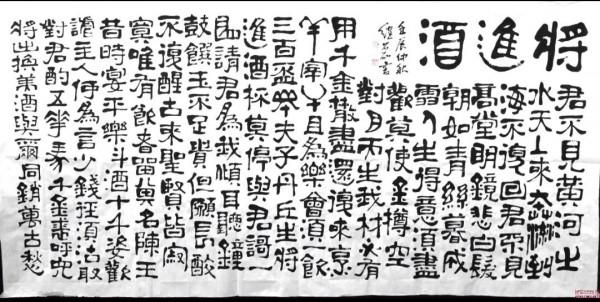 将進酒
壬辰仲秋
君不見黃河之
水天上來奔流到
海不復回君不見
高堂明鏡悲白髮
朝如青絲暮成
雪人生得意須盡
歡莫使金樽空
對月天生我材必有
用千金散盡還復來烹
羊宰牛且為樂會須一飲
三百盃岑夫子丹丘生將
進酒杯莫停與君謌一
曲請君為我傾耳聽鐘
鼓饌玉不足貴但願長醉
不復醒古來聖賢皆寂
寞唯有飲者留其名陳王
昔時宴平樂斗酒十千恣歡
謔主人何為言少錢徑須沽取
對君酌五華馬千金裘呼兒
將出換美酒與爾同銷萬古愁